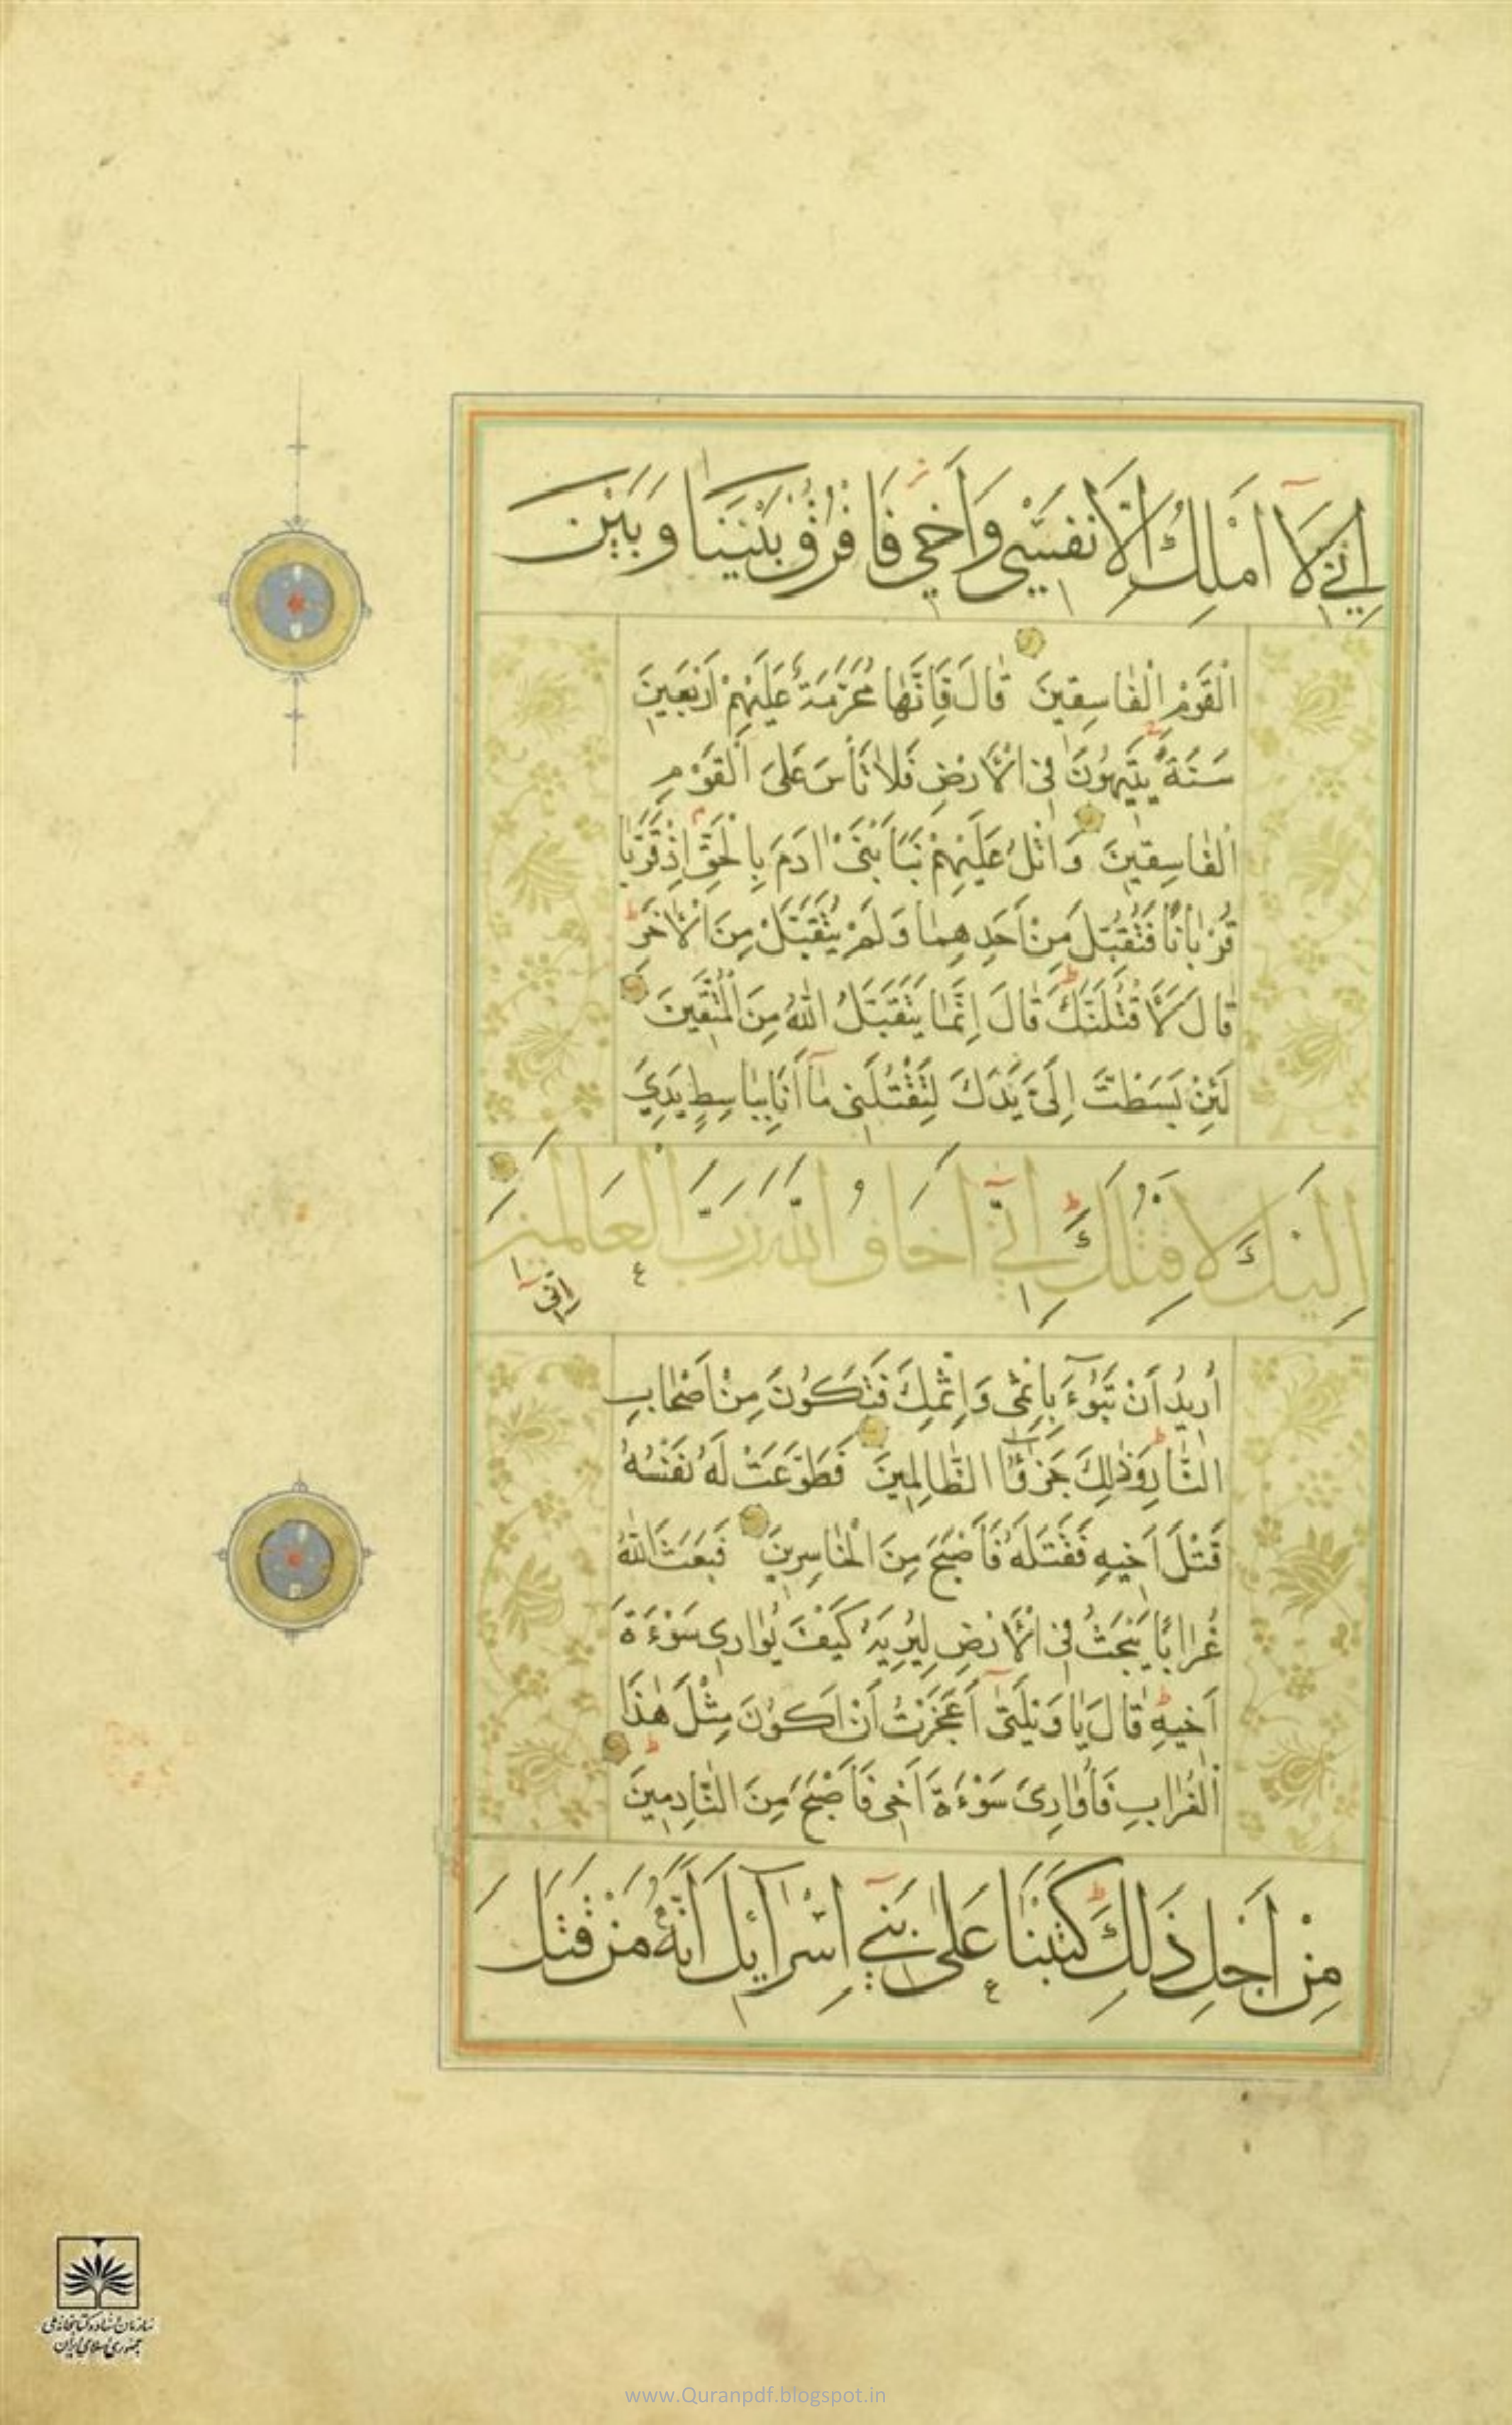 اِنّي لَا اَمْلِكُ اِلَّا نَفْسي وَاَخي فَافْرُقْ بَيْنَنَا وَبَيْنَ
الْقَوْمِ الْفَاسِقينَ قَالَ فَاِنَّهَا مُحَرَّمَةٌ عَلَيْهِمْ اَرْبَعينَ
سَنَةً يَتيهُونَ فِي الْاَرْضِ فَلَا تَأْسَ عَلَى الْقَوْمِ
الْفَاسِقينَ وَاتْلُ عَلَيْهِمْ نَبَاَ ابْنَيْ ادَمَ بِالْحَقِّ اِذْ قَرَّبَا
قُرْبَانًا فَتُقُبِّلَ مِنْ اَحَدِهِمَا وَلَمْ يُتَقَبَّلْ مِنَ الْاخَرِ
قَالَ لَاَقْتُلَنَّكَ قَالَ اِنَّمَا يَتَقَبَّلُ اللّٰهُ مِنَ الْمُتَّقينَ
لَئِنْ بَسَطْتَ اِلَيَّ يَدَكَ لِتَقْتُلَني مَا اَنَا بِبَاسِطٍ يَدِيَ
اِلَيْكَ لِاَقْتُلَكَ اِنّي اَخَافُ اللّٰهَ رَبَّ الْعَالَمينَ
اِنّي
اُريدُ اَنْ تَبُوءَ بِاِثْمي وَاِثْمِكَ فَتَكُونَ مِنْ اَصْحَابِ
النَّارِ وَذٰلِكَ جَزٰؤُا الظَّالِمينَ فَطَوَّعَتْ لَهُ نَفْسُهُ
قَتْلَ اَخيهِ فَقَتَلَهُ فَاَصْبَحَ مِنَ الْخَاسِرينَ فَبَعَثَ اللّٰهُ
غُرَابًا يَبْحَثُ فِي الْاَرْضِ لِيُرِيَهُ كَيْفَ يُوَاري سَوْءَةَ
اَخيهِ قَالَ يَا وَيْلَتٰى اَعَجَزْتُ اَنْ اَكُونَ مِثْلَ هٰذَا
الْغُرَابِ فَاُوَارِيَ سَوْءَةَ اَخي فَاَصْبَحَ مِنَ النَّادِمينَ
مِنْ اَجْلِ ذٰلِكَ كَتَبْنَا عَلٰى بَني اِسْرَآئيلَ اَنَّهُ مَنْ قَتَلَ
سازمان اسناد و کتابخانه ملی
جمهوری اسلامی ایران
www.Quranpdf.blogspot.in